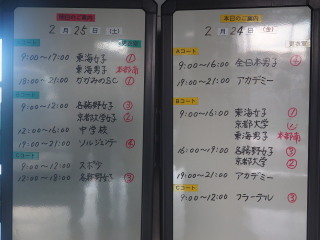 明日のご案内
2月25日(土)
更衣室
9:00~17:00 東海女子 ①
東海男子 本部南
18:00~21:00 かがみのSC ①
9:00~12:00 各務野女子 ③
京都大学女子 ②
12:00~16:00 中学校
19:00~21:00 ソルジェンテ ④
Cコート
9:00~12:00 スポ少
12:00~18:00 各務野女子 ③
本日のご案内
2月24日(金)
更衣室
Aコート
9:00~16:00 全日本男子 ④
19:00~21:00 アカデミー
Bコート
9:00~16:00 東海女子 ①
京都大学
東海男子 本部南
16:00~19:00 各務野女子 ③
京都大学 ②
19:00~21:00 アカデミー
Cコート
9:00~12:00 フラーテル ③